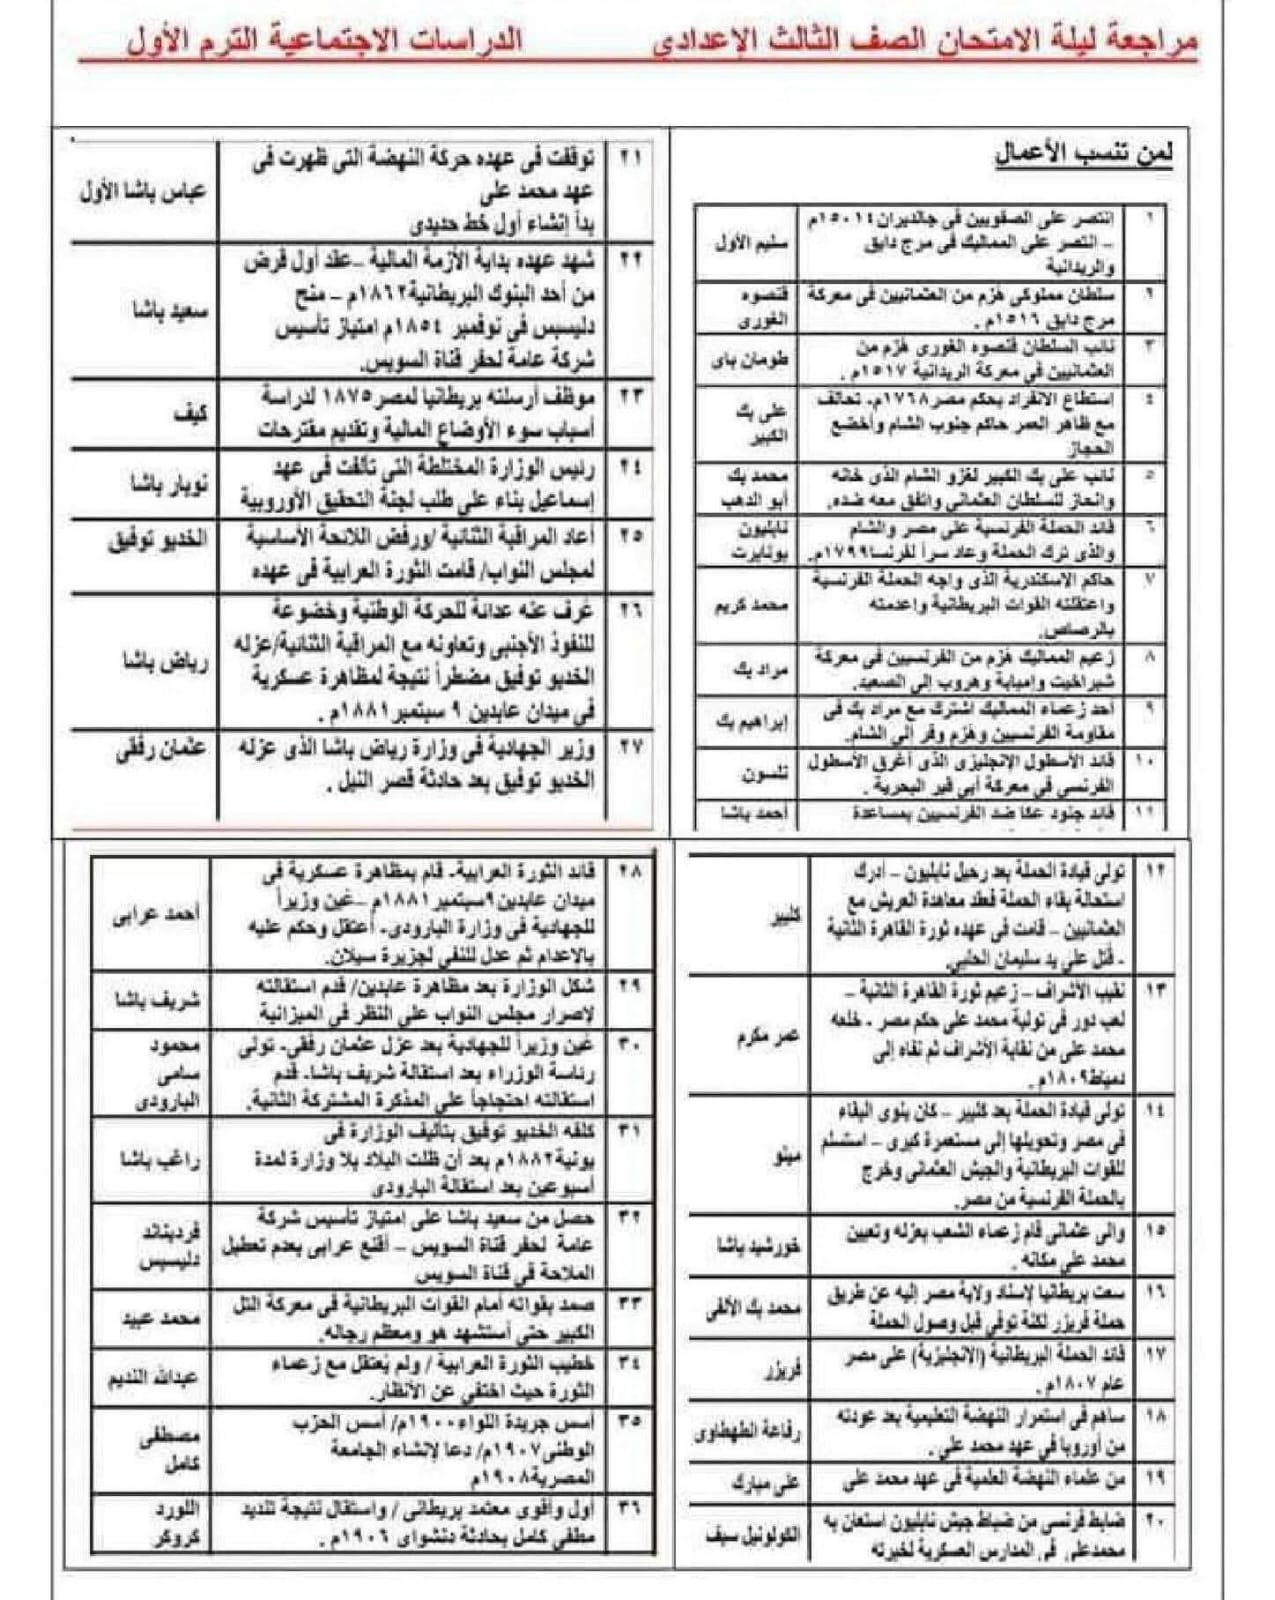 مراجعة ليلة الامتحان الصف الثالث الإعدادى الدراسات الاجتماعية الترم الأول
لمن تنسب الأعمال
١ انتصر على الصفويين فى جالديران١٥٠١٤م سليم الأول
– انتصر على المماليك فى مرج دابق
والريدانية
٢ سلطان مملوكى هُزم من العثمانيين فى معركة قنصوه
مرج دابق ١٥١٦م . الغورى
٣ نائب السلطان قنصوه الغورى هُزم من طومان باى
العثمانيين فى معركة الريدانية ١٥١٧م .
٤ استطاع الانفراد بحكم مصر١٧٦٨م. تحالف على بك
مع ظاهر العمر حاكم جنوب الشام وأخضع الكبير
الحجاز
٥ نائب على بك الكبير لغزو الشام الذى خانه محمد بك
وانحاز للسلطان العثمانى واتفق معه ضده. أبو الدهب
٦ قائد الحملة الفرنسية على مصر والشام نابليون
والذى ترك الحملة وعاد سراً لفرنسا١٧٩٩م. بونابرت
٧ حاكم الاسكندرية الذى واجه الحملة الفرنسية محمد كريم
واعتقلته القوات البريطانية واعدمته
بالرصاص.
٨ زعيم المماليك هُزم من الفرنسيين فى معركة مراد بك
شبراخيت وإمبابة وهروب إلى الصعيد.
٩ أحد زعماء المماليك اشترك مع مراد بك فى إبراهيم بك
مقاومة الفرنسيين وهُزم وفر إلى الشام.
١٠ قائد الأسطول الإنجليزى الذى أغرق الأسطول نلسون
الفرنسى فى معركة أبى قير البحرية .
١١ قائد جنود عكا ضد الفرنسيين بمساعدة أحمد باشا
١٢ تولى قيادة الحملة بعد رحيل نابليون – أدرك كليبر
استحالة بقاء الحملة فعقد معاهدة العريش مع
العثمانيين – قامت فى عهده ثورة القاهرة الثانية
- قُتل على يد سليمان الحلبى.
١٣ نقيب الأشراف – زعيم ثورة القاهرة الثانية – عمر مكرم
لعب دور فى تولية محمد على حكم مصر - خلعه
محمد على من نقابة الأشراف ثم نفاه إلى
دمياط١٨٠٩م .
١٤ تولى قيادة الحملة بعد كليبر – كان ينوى البقاء مينو
فى مصر وتحويلها إلى مستعمرة كبرى – استسلم
للقوات البريطانية والجيش العثمانى وخرج
بالحملة الفرنسية من مصر.
١٥ والى عثمانى قام زعماء الشعب بعزله وتعيين خورشيد باشا
محمد على مكانه .
١٦ سعت بريطانيا لإسناد ولاية مصر إليه عن طريق محمد بك الألفى
حملة فريزر لكنة توفي قبل وصول الحملة
١٧ قائد الحملة البريطانية (الانجليزية) على مصر فريزر
عام ١٨٠٧م .
١٨ ساهم فى استمرار النهضة التعليمية بعد عودته رفاعة الطهطاوى
من أوروبا فى عهد محمد على .
١٩ من علماء النهضة العلمية فى عهد محمد على على مبارك
٢٠ ضابط فرنسى من ضباط جيش نابليون استعان به الكولونيل سيف
محمدعلى فى المدارس العسكرية لخبرته
٢١ توقفت فى عهده حركة النهضة التى ظهرت فى عباس باشا الأول
عهد محمد على
بدأ إنشاء أول خط حديدى
٢٢ شهد عهده بداية الأزمة المالية –عقد أول قرض سعيد باشا
من أحد البنوك البريطانية١٨٦٢م – منح
دليسبس فى نوفمبر ١٨٥٤م امتياز تأسيس
شركة عامة لحفر قناة السويس.
٢٣ موظف أرسلته بريطانيا لمصر ١٨٧٥ لدراسة كيف
أسباب سوء الأوضاع المالية وتقديم مقترحات
٢٤ رئيس الوزارة المختلطة التى تألفت فى عهد نوبار باشا
إسماعيل بناء على طلب لجنة التحقيق الأوروبية
٢٥ أعاد المراقبة الثنائية /ورفض اللائحة الأساسية الخديو توفيق
لمجلس النواب/ قامت الثورة العرابية فى عهده
٢٦ عُرف عنه عدائة للحركة الوطنية وخضوعة رياض باشا
للنفوذ الأجنبى وتعاونه مع المراقبة الثنائية/عزله
الخديو توفيق مضطراً نتيجة لمظاهرة عسكرية
فى ميدان عابدين ٩ سبتمبر ١٨٨١م .
٢٧ وزير الجهادية فى وزارة رياض باشا الذى عزله عثمان رفقى
الخديو توفيق بعد حادثة قصر النيل .
٢٨ قائد الثورة العرابية- قام بمظاهرة عسكرية فى أحمد عرابى
ميدان عابدين٩سبتمبر ١٨٨١م –عُين وزيراً
للجهادية فى وزارة البارودى- أعتقل وحكم عليه
بالاعدام ثم عدل للنفى لجزيرة سيلان.
٢٩ شكل الوزارة بعد مظاهرة عابدين/ قدم استقالته شريف باشا
لإصرار مجلس النواب على النظر فى الميزانية
٣٠ عُين وزيراً للجهادية بعد عزل عثمان رفقى- تولى محمود
رئاسة الوزراء بعد استقالة شريف باشا- قدم سامى
استقالته احتجاجاً على المذكرة المشتركة الثانية. البارودى
٣١ كلفه الخديو توفيق بتأليف الوزارة فى راغب باشا
يونية١٨٨٢م بعد أن ظلت البلاد بلا وزارة لمدة
أسبوعين بعد استقالة البارودى
٣٢ حصل من سعيد باشا على امتياز تأسيس شركة فرديناند
عامة لحفر قناة السويس – أقنع عرابى بعدم تعطيل دليسبس
الملاحة فى قناة السويس
٣٣ صمد بقواته أمام القوات البريطانية فى معركة التل محمد عبيد
الكبير حتى أستشهد هو ومعظم رجاله.
٣٤ خطيب الثورة العرابية / ولم يُعتقل مع زعماء عبدالله النديم
الثورة حيث اختفي عن الأنظار.
٣٥ أسس جريدة اللواء١٩٠٠م/ أسس الحزب مصطفى
الوطنى١٩٠٧م/ دعا لإنشاء الجامعة كامل
المصرية١٩٠٨م
٣٦ أول وأقوى معتمد بريطانى / واستقال نتيجة تنديد اللورد
مطفى كامل بحادثة دنشواى ١٩٠٦م . كرومر